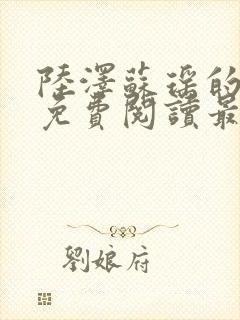 陸澤蘇瑤的
免費閱讀最
劉娘府